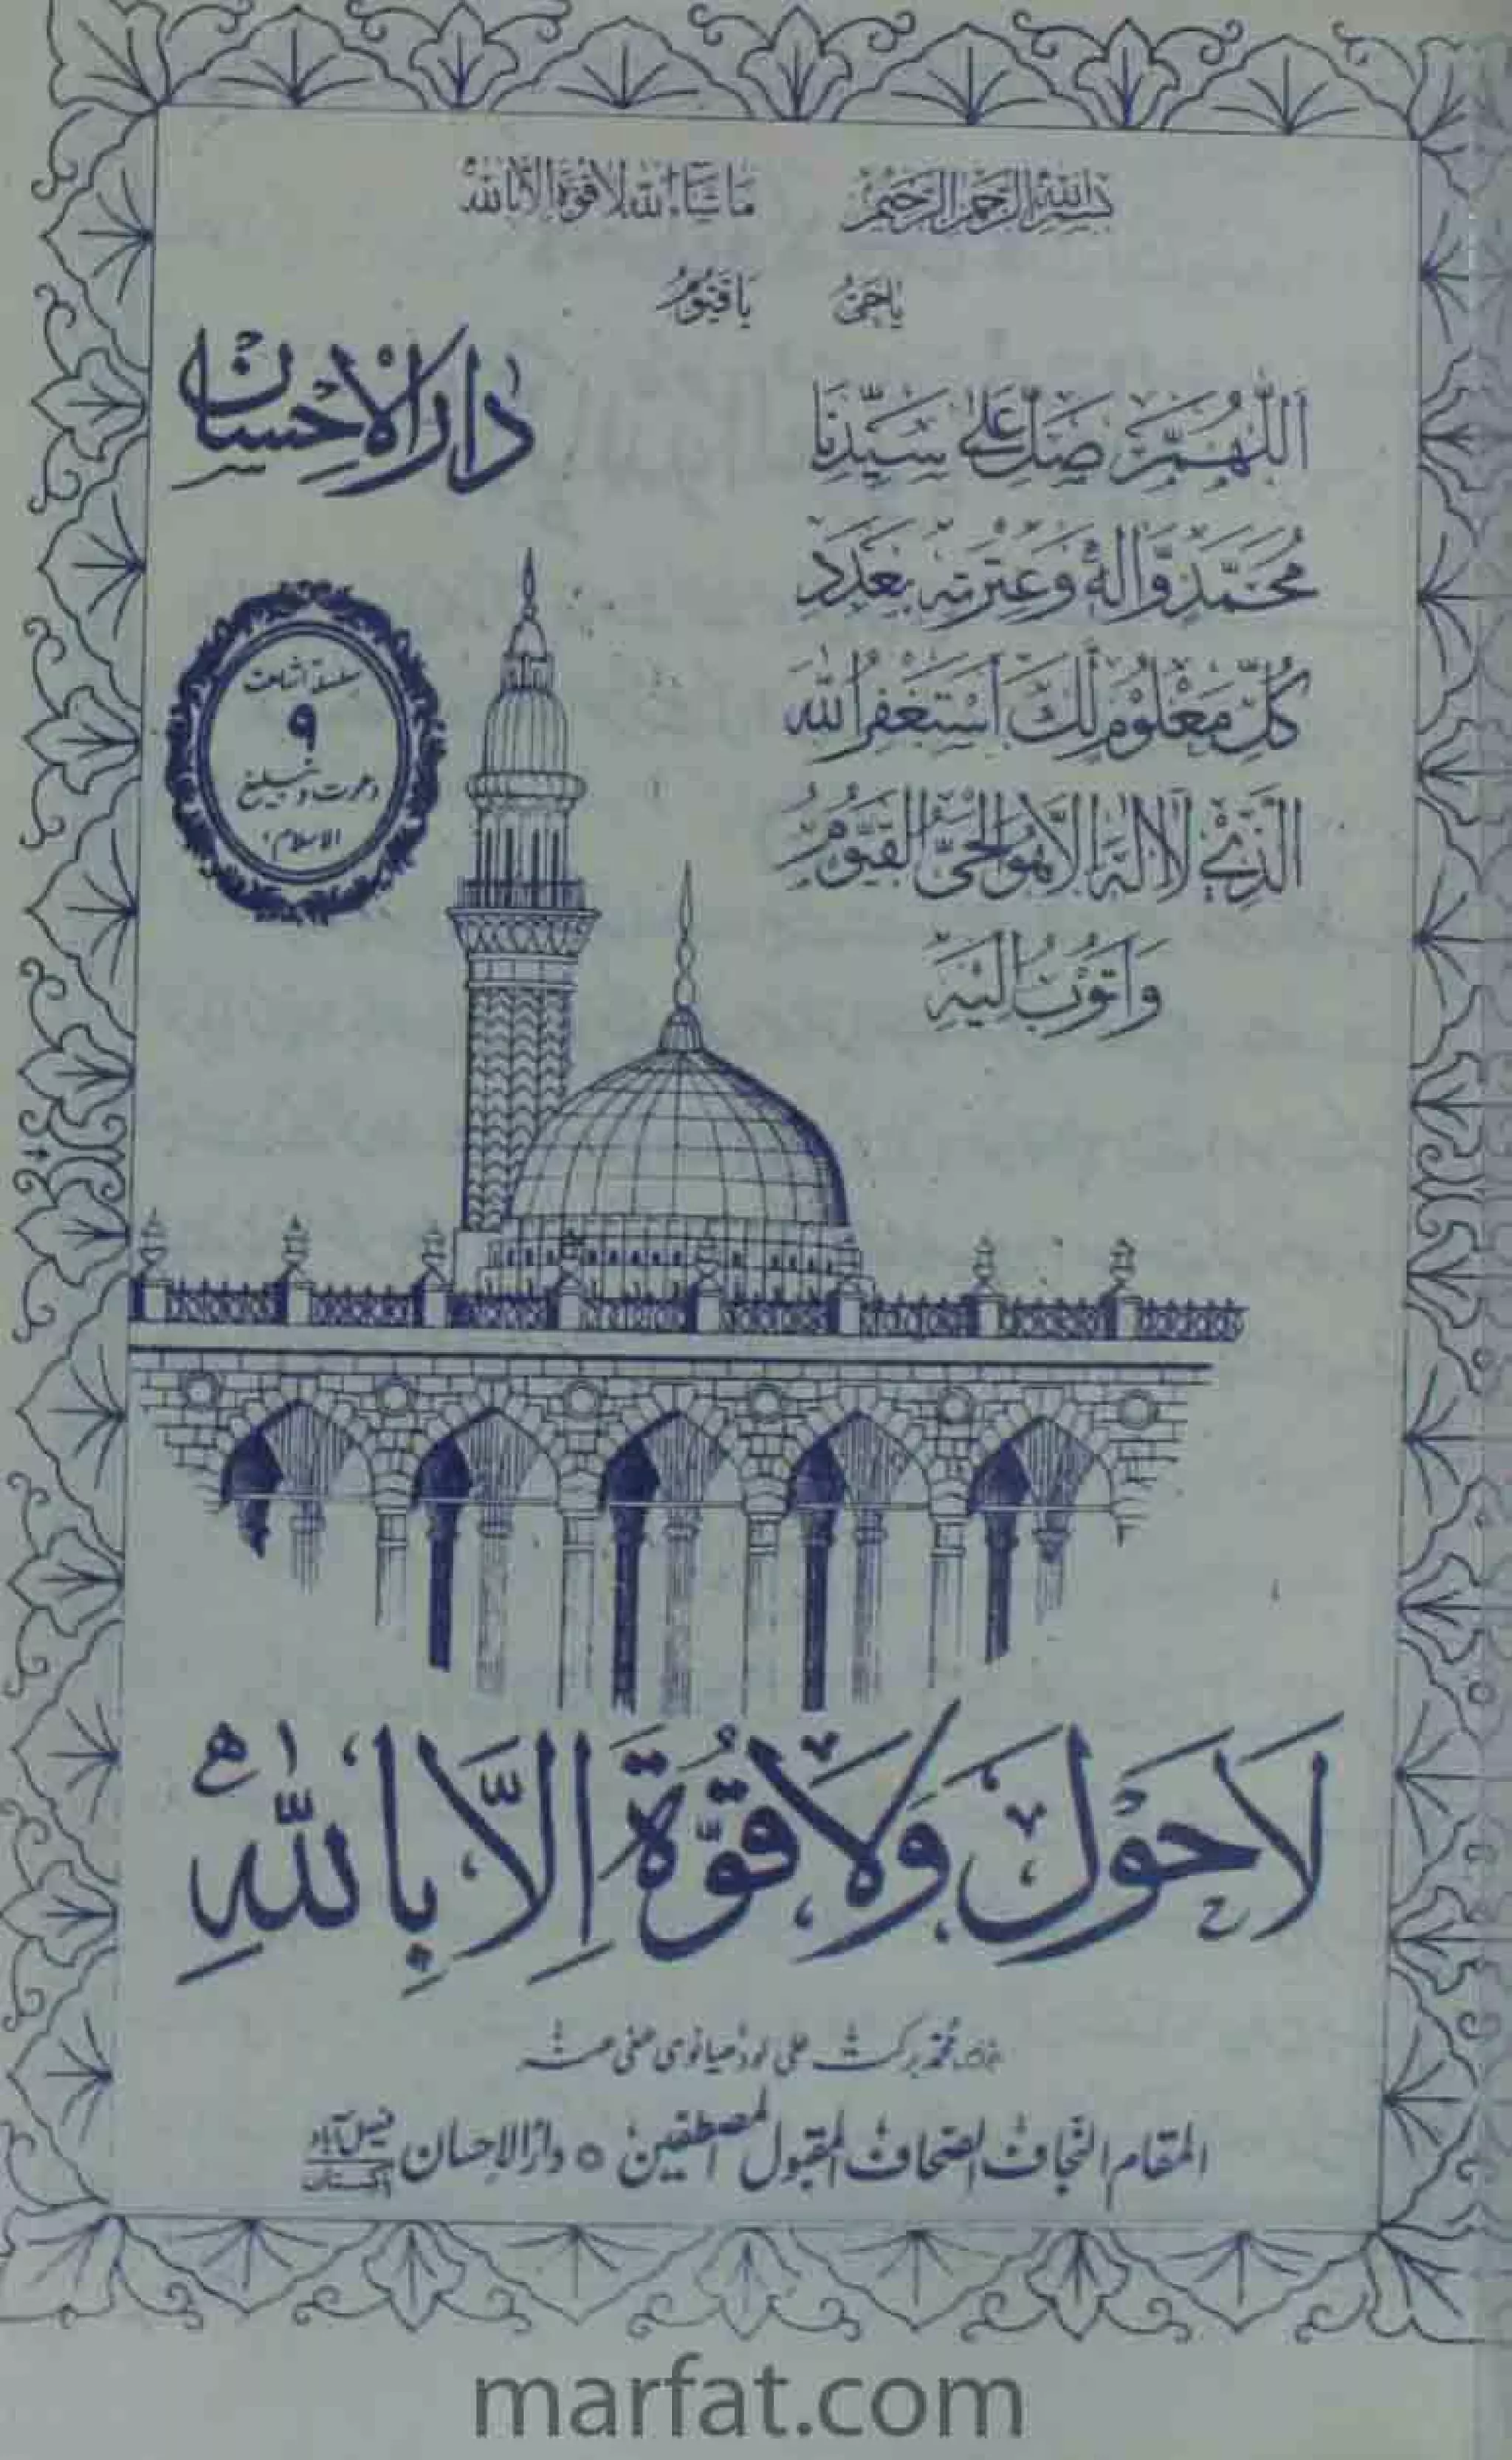 بِسْمِ اللهِ الرَّحْمٰنِ الرَّحِيْمِ مَا شَآءَ اللهُ لَا قُوَّةَ اِلَّا بِاللهِ
يَا حَيُّ يَا قَيُّوْمُ
دَارُ الْاِحْسَان
اَللّٰهُمَّ صَلِّ عَلٰى سَيِّدِنَا
مُحَمَّدٍ وَّاٰلِهٖ وَعِتْرَتِهٖ بِعَدَدِ
كُلِّ مَعْلُوْمٍ لَّكَ اَسْتَغْفِرُ اللهَ
الَّذِيْ لَا اِلٰهَ اِلَّا هُوَ الْحَيُّ الْقَيُّوْمُ
وَاَتُوْبُ اِلَيْهِ
سلسلۂ اشاعت
۹
دعوت و تبلیغ
الاسلام
لَا حَوْلَ وَلَا قُوَّةَ اِلَّا بِاللهِ
محمد برکت علی لودھیانوی عفی عنہ
المقام النجاف الصحاف المقبول المصطفین ○ دارالاحسان فیصل آباد
پاکستان
marfat.com